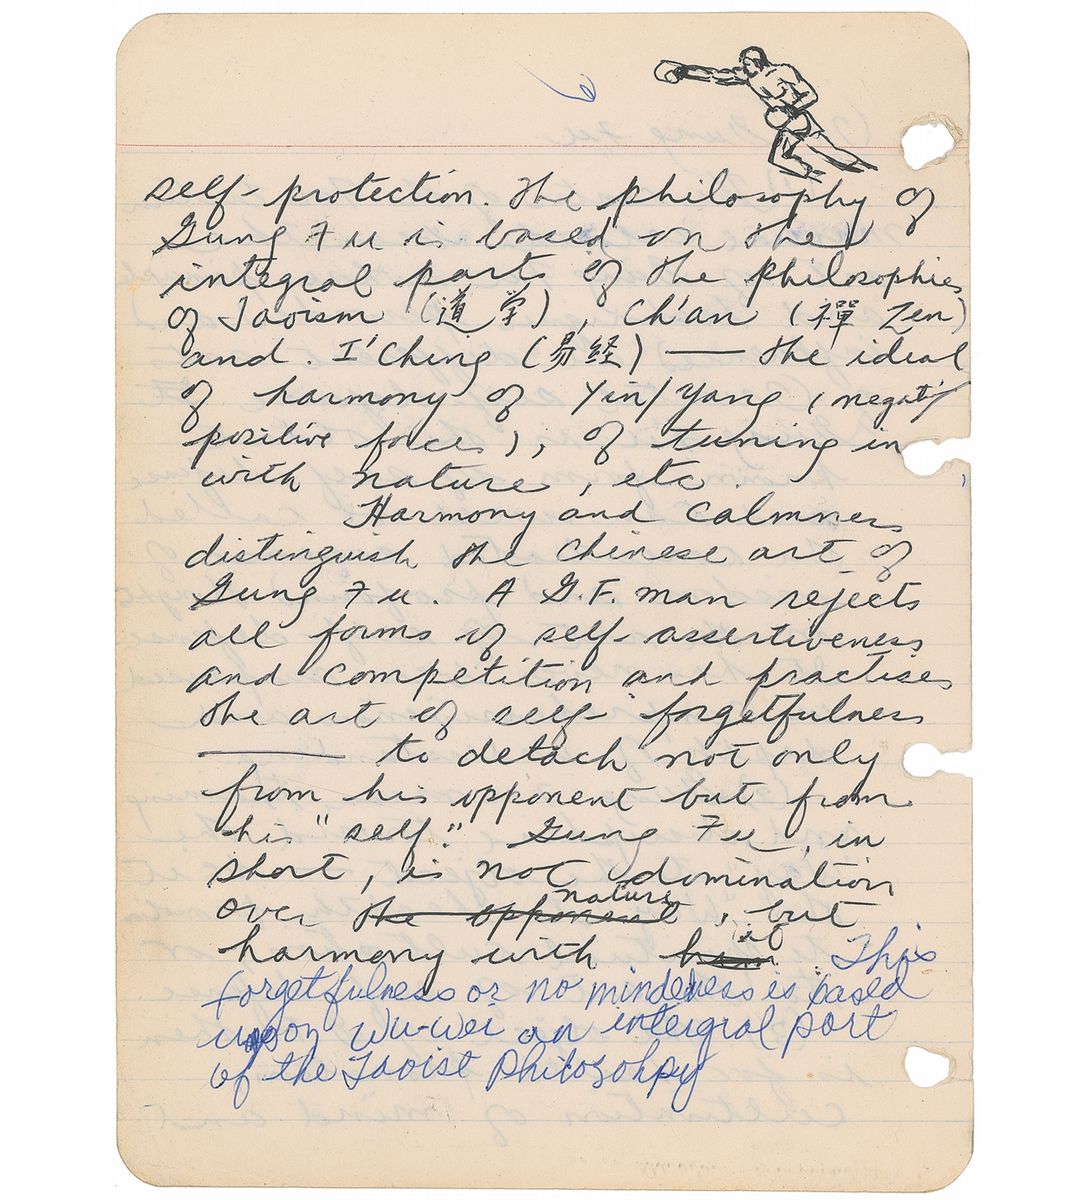 self-protection. The philosophy of
Gung Fu is based on the
integral parts of the philosophies
of Taoism (道学), Ch'an (禪 Zen)
and I'Ching (易経) — the ideal
of harmony of Yin/Yang (negativ/
positive forces); of tuning in
with nature, etc.
Harmony and calmness
distinguish the Chinese art of
Gung Fu. A G.F. man rejects
all forms of self-assertiveness
and competition and practises
the art of self-forgetfulness
— to detach not only
from his opponent but from
his "self." Gung Fu, in
short, is not domination
over the opponent nature, but
harmony with him it. This
forgetfulness or no mindeness is based
upon Wu-wei an intergral part
of the Taoist Philosohpy